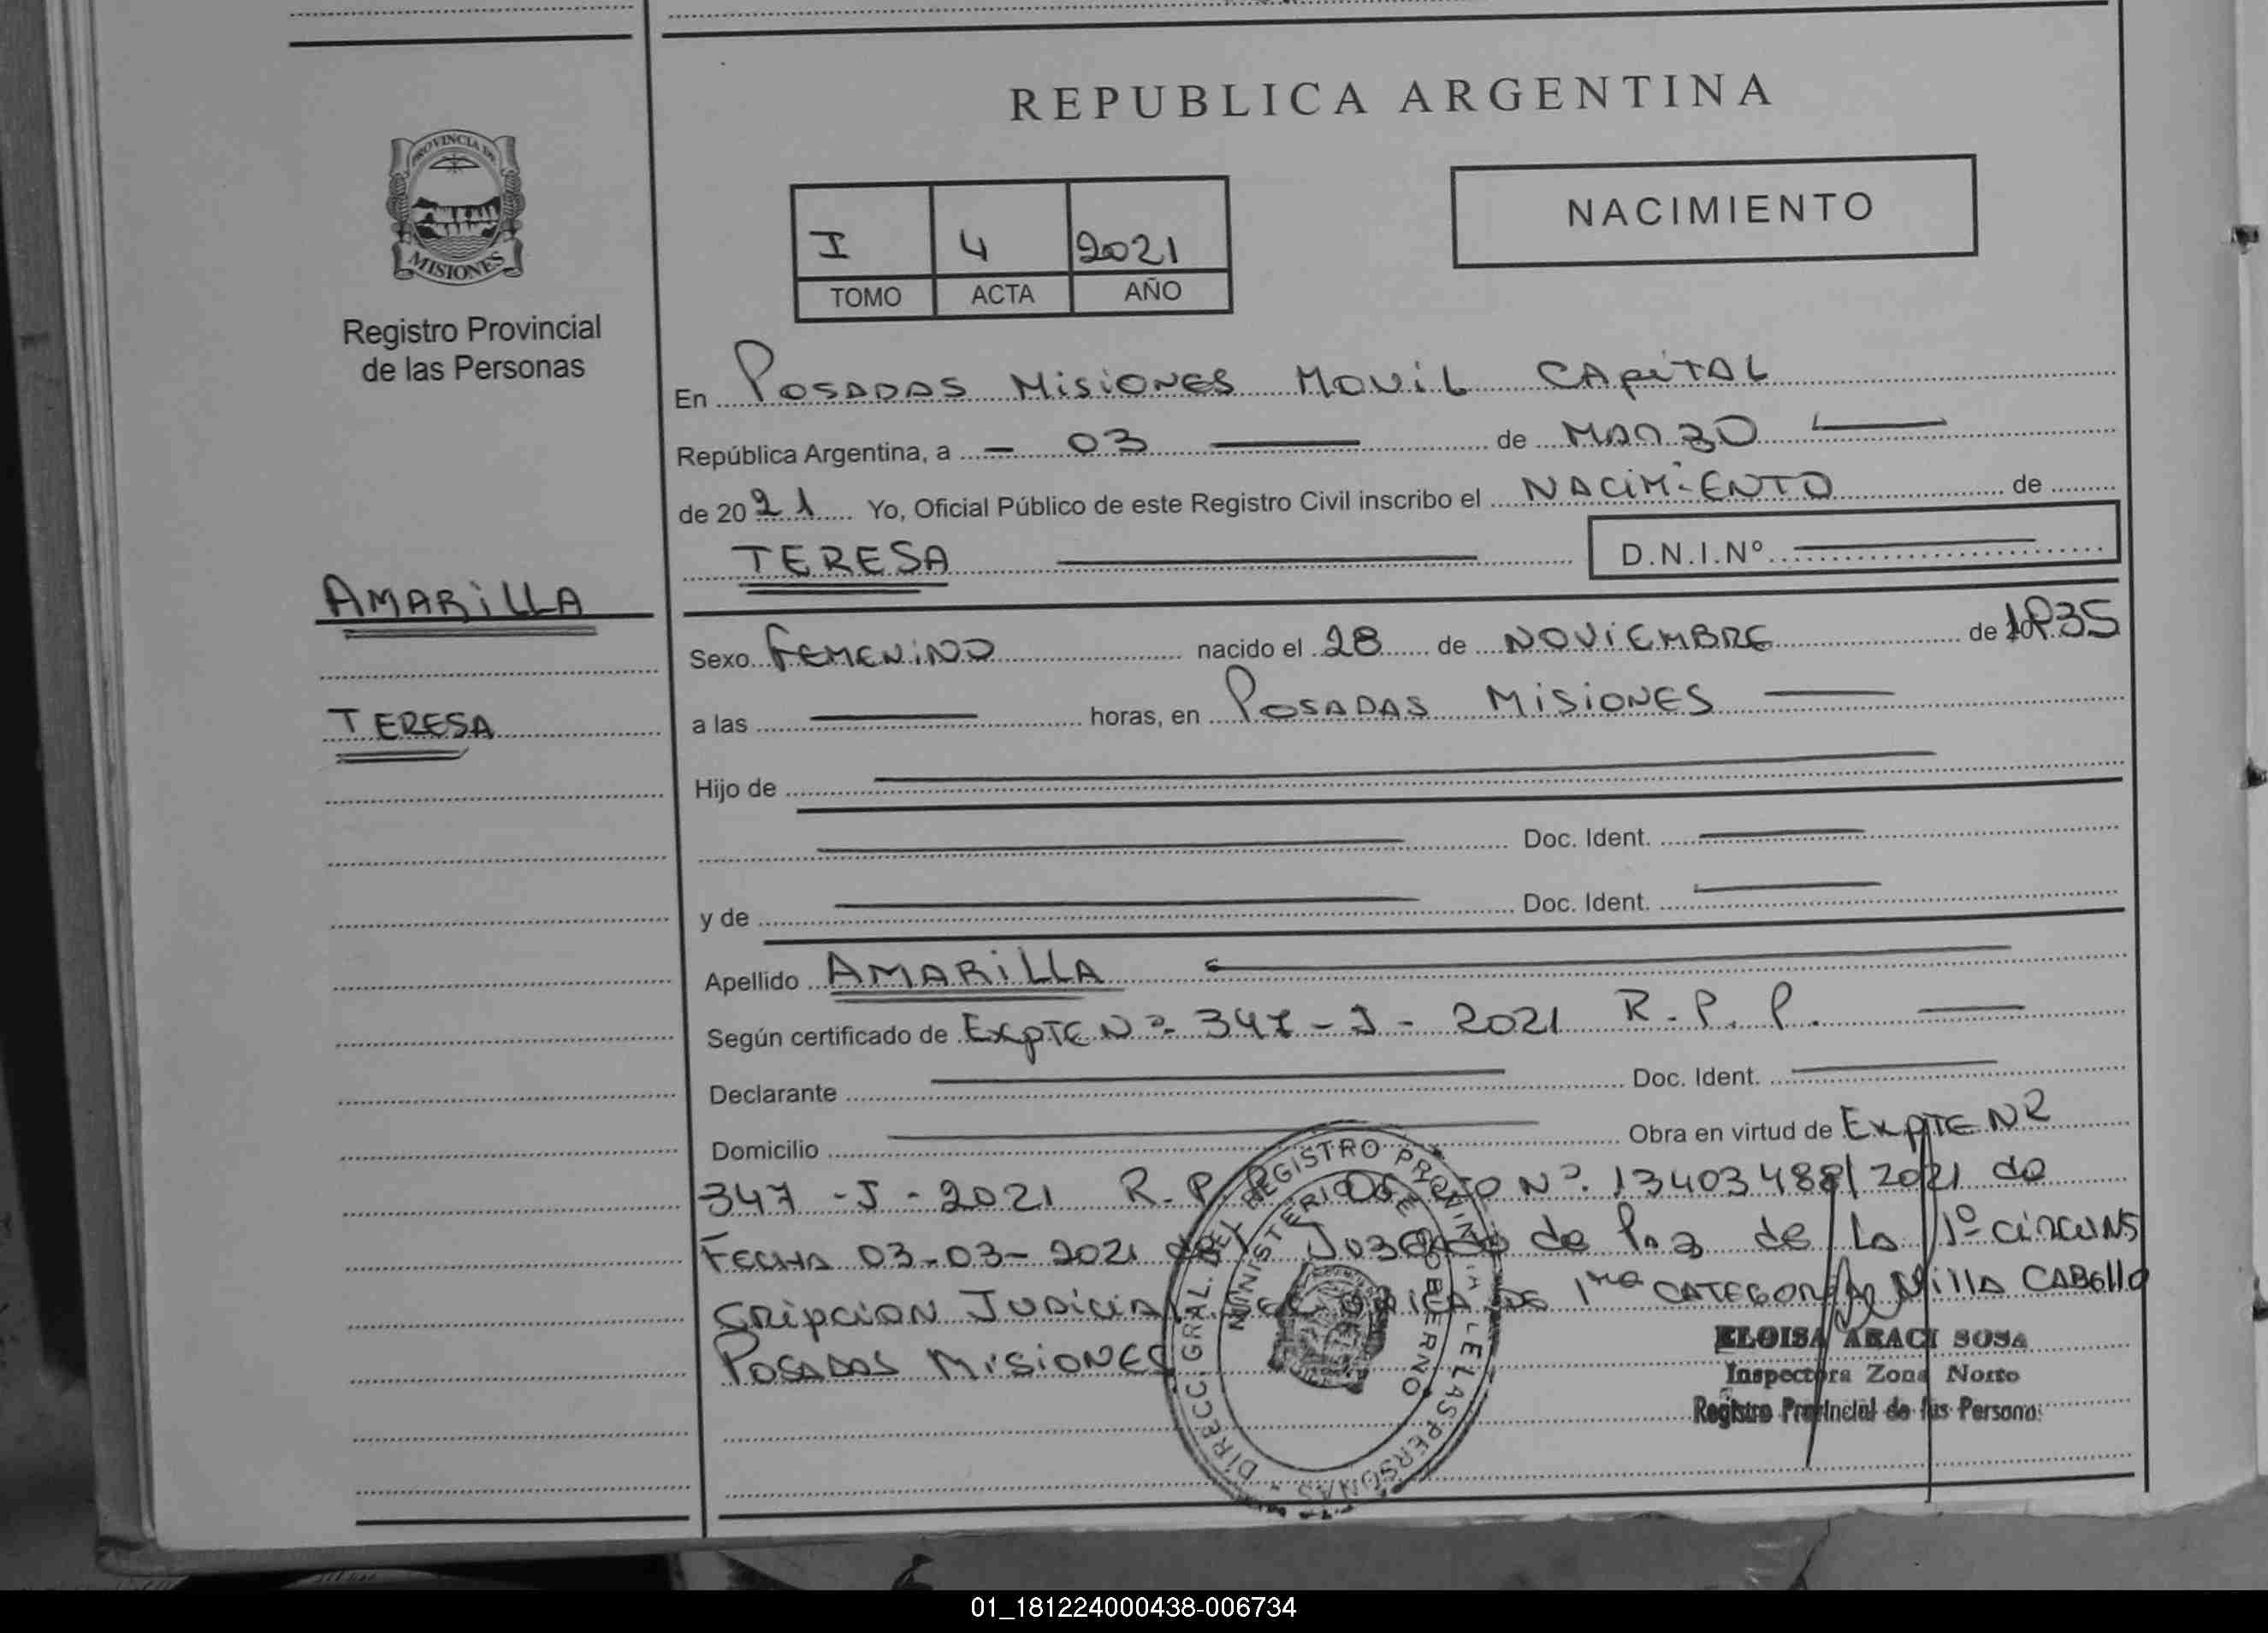 REPUBLICA ARGENTINA
PROVINCIA DE
MISIONES
Registro Provincial
de las Personas
NACIMIENTO
I 4 2021
TOMO ACTA AÑO
En POSADAS MISIONES MOVIL CAPITAL
República Argentina, a - 03 de MARZO
de 2021 Yo, Oficial Público de este Registro Civil inscribo el NACIMIENTO de
TERESA D.N.I.Nº
AMARILLA
TERESA
Sexo FEMENINO nacido el 28 de NOVIEMBRE de 1935
a las horas, en POSADAS MISIONES
Hijo de
Doc. Ident.
y de Doc. Ident.
Apellido AMARILLA
Según certificado de EXPTE Nº 347 - J - 2021 R.P.P.
Declarante Doc. Ident.
Domicilio Obra en virtud de EXPTE Nº
347 - J - 2021 R.P. Nº 13403488/2021 de
FECHA 03-03-2021 del Juzgado de Paz de La 1º CIRCUNS
CRIPCION JUDICIAL DE 1ra CATEGORIA Villa CABELLO
POSADAS MISIONES
DIRECC. GRAL. DEL REGISTRO PROVINCIAL DE LAS PERSONAS
MINISTERIO DE GOBIERNO
ELOISA ARACI SOSA
Inspectora Zona Norte
Registro Provincial de las Personas
01_181224000438-006734